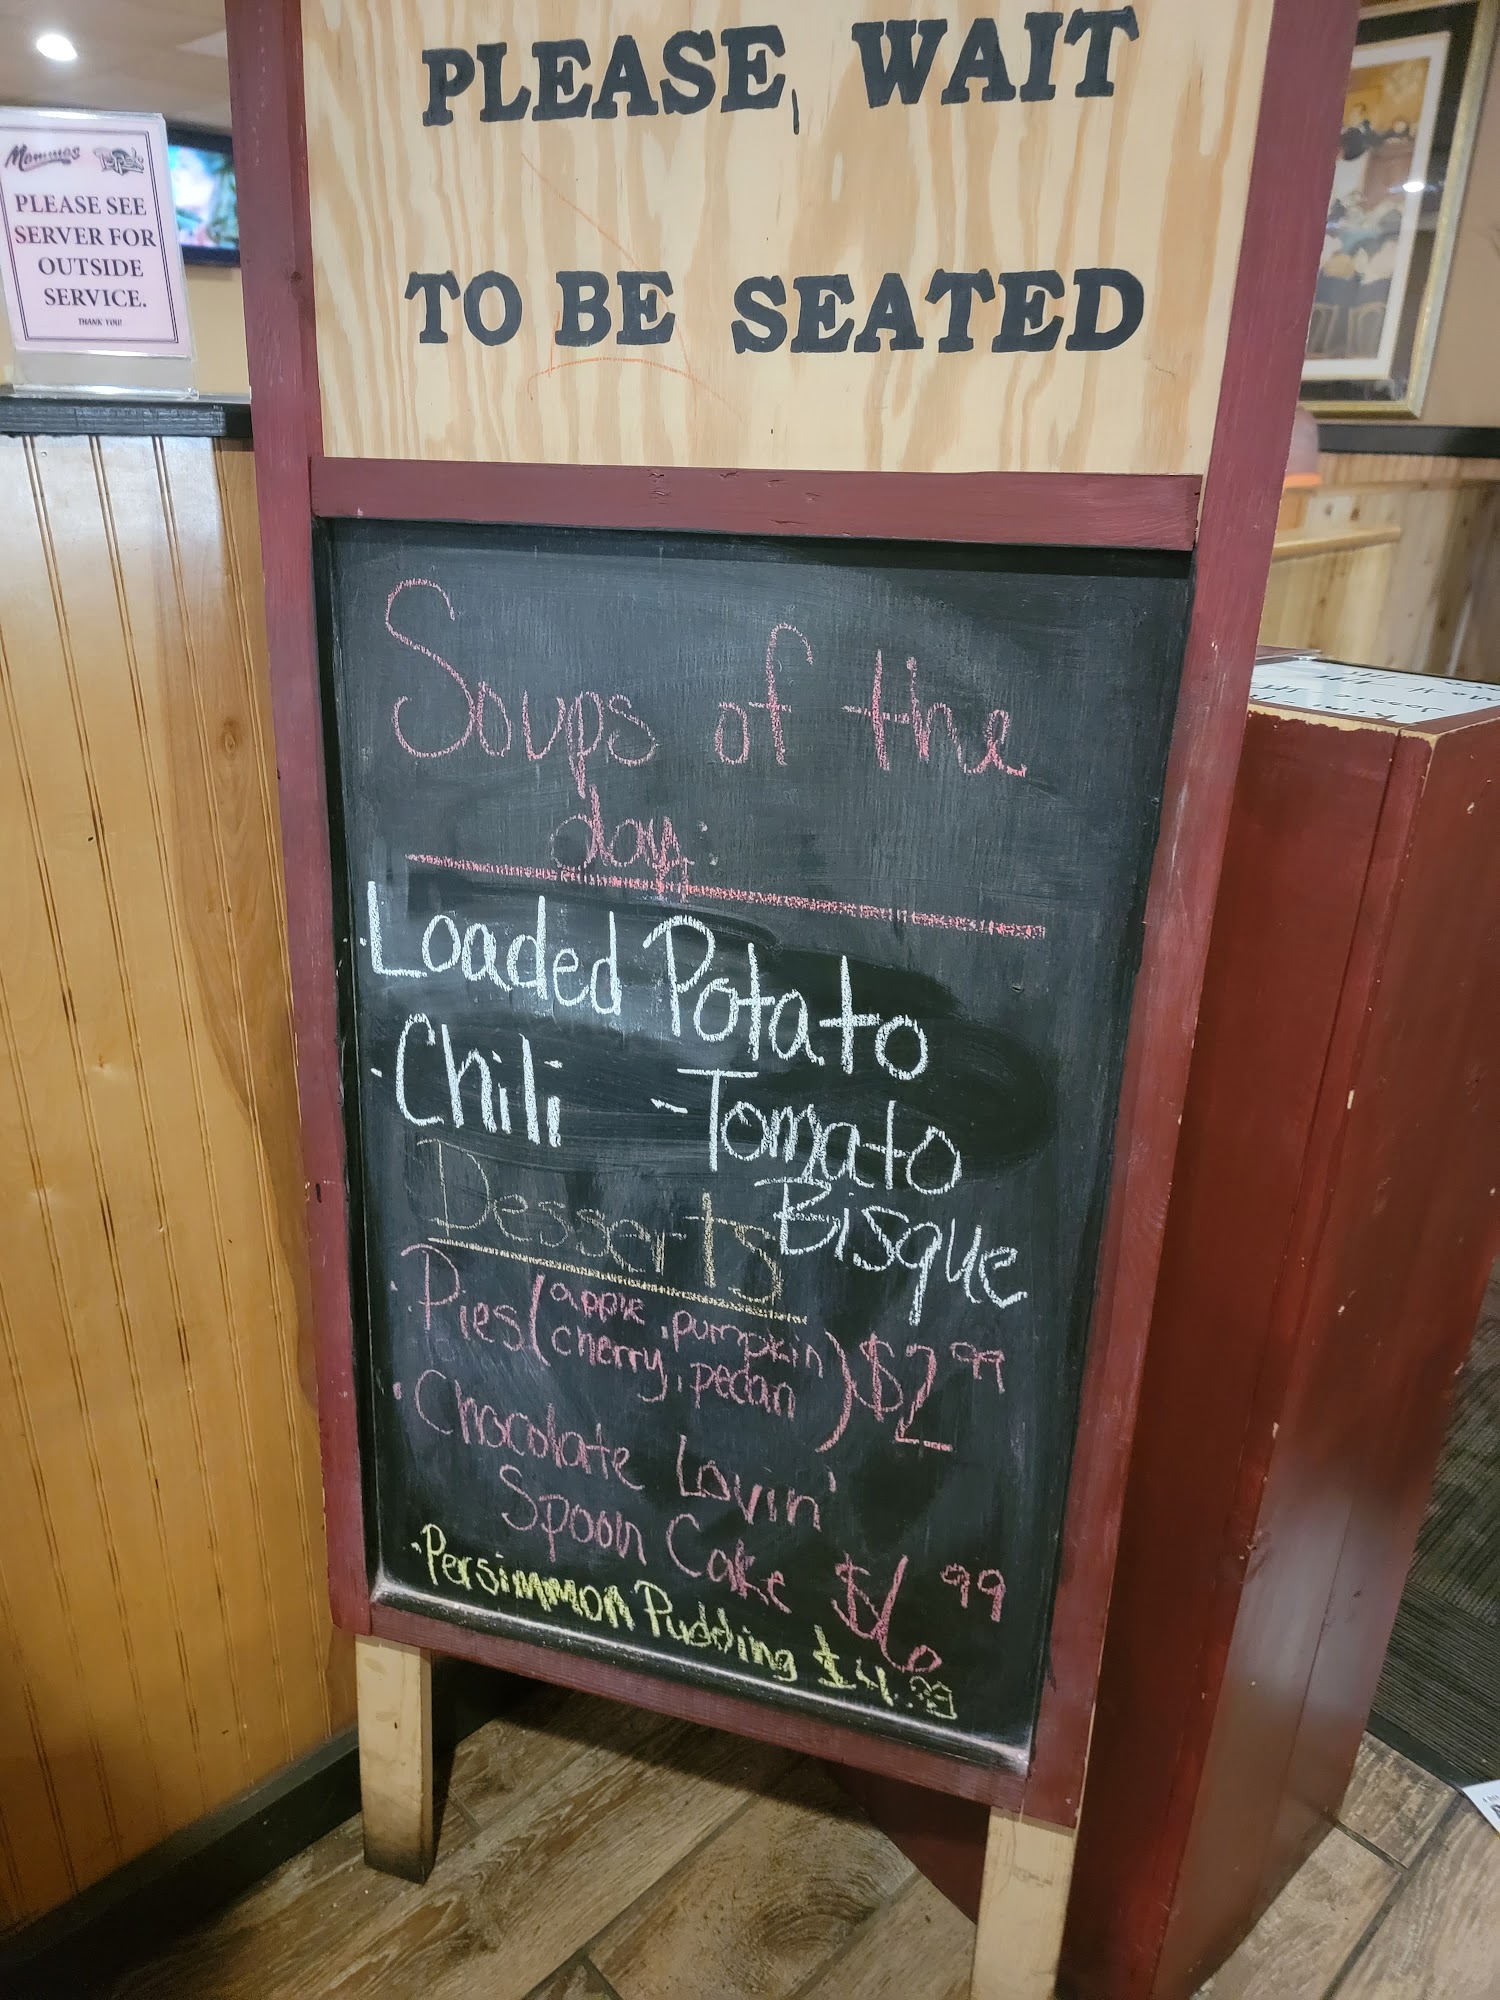 PLEASE, WAIT
TO BE SEATED
Mammas
PLEASE SEE
SERVER FOR
OUTSIDE
SERVICE.
THANK YOU!
Soups of the
day:
· Loaded Potato
· Chili - Tomato
Bisque
Desserts
· Pies (apple, pumpkin
cherry, pecan) $2.99
· Chocolate Lovin'
Spoon Cake $6.99
· Persimmon Pudding $4.99